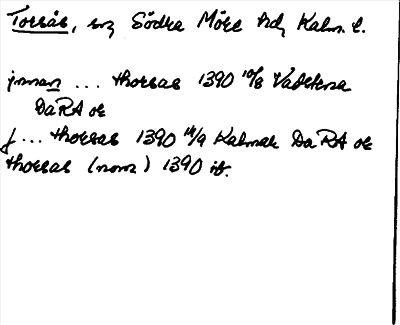 Torsås, sn, Södra Möre hd, Kalm. l.
jnnan ... thorsas 1390 10/8 Vadstena
DaRA or
j ... thorsas 1390 14/9 Kalmar DaRA or
thorsas (nom) 1390 ib.